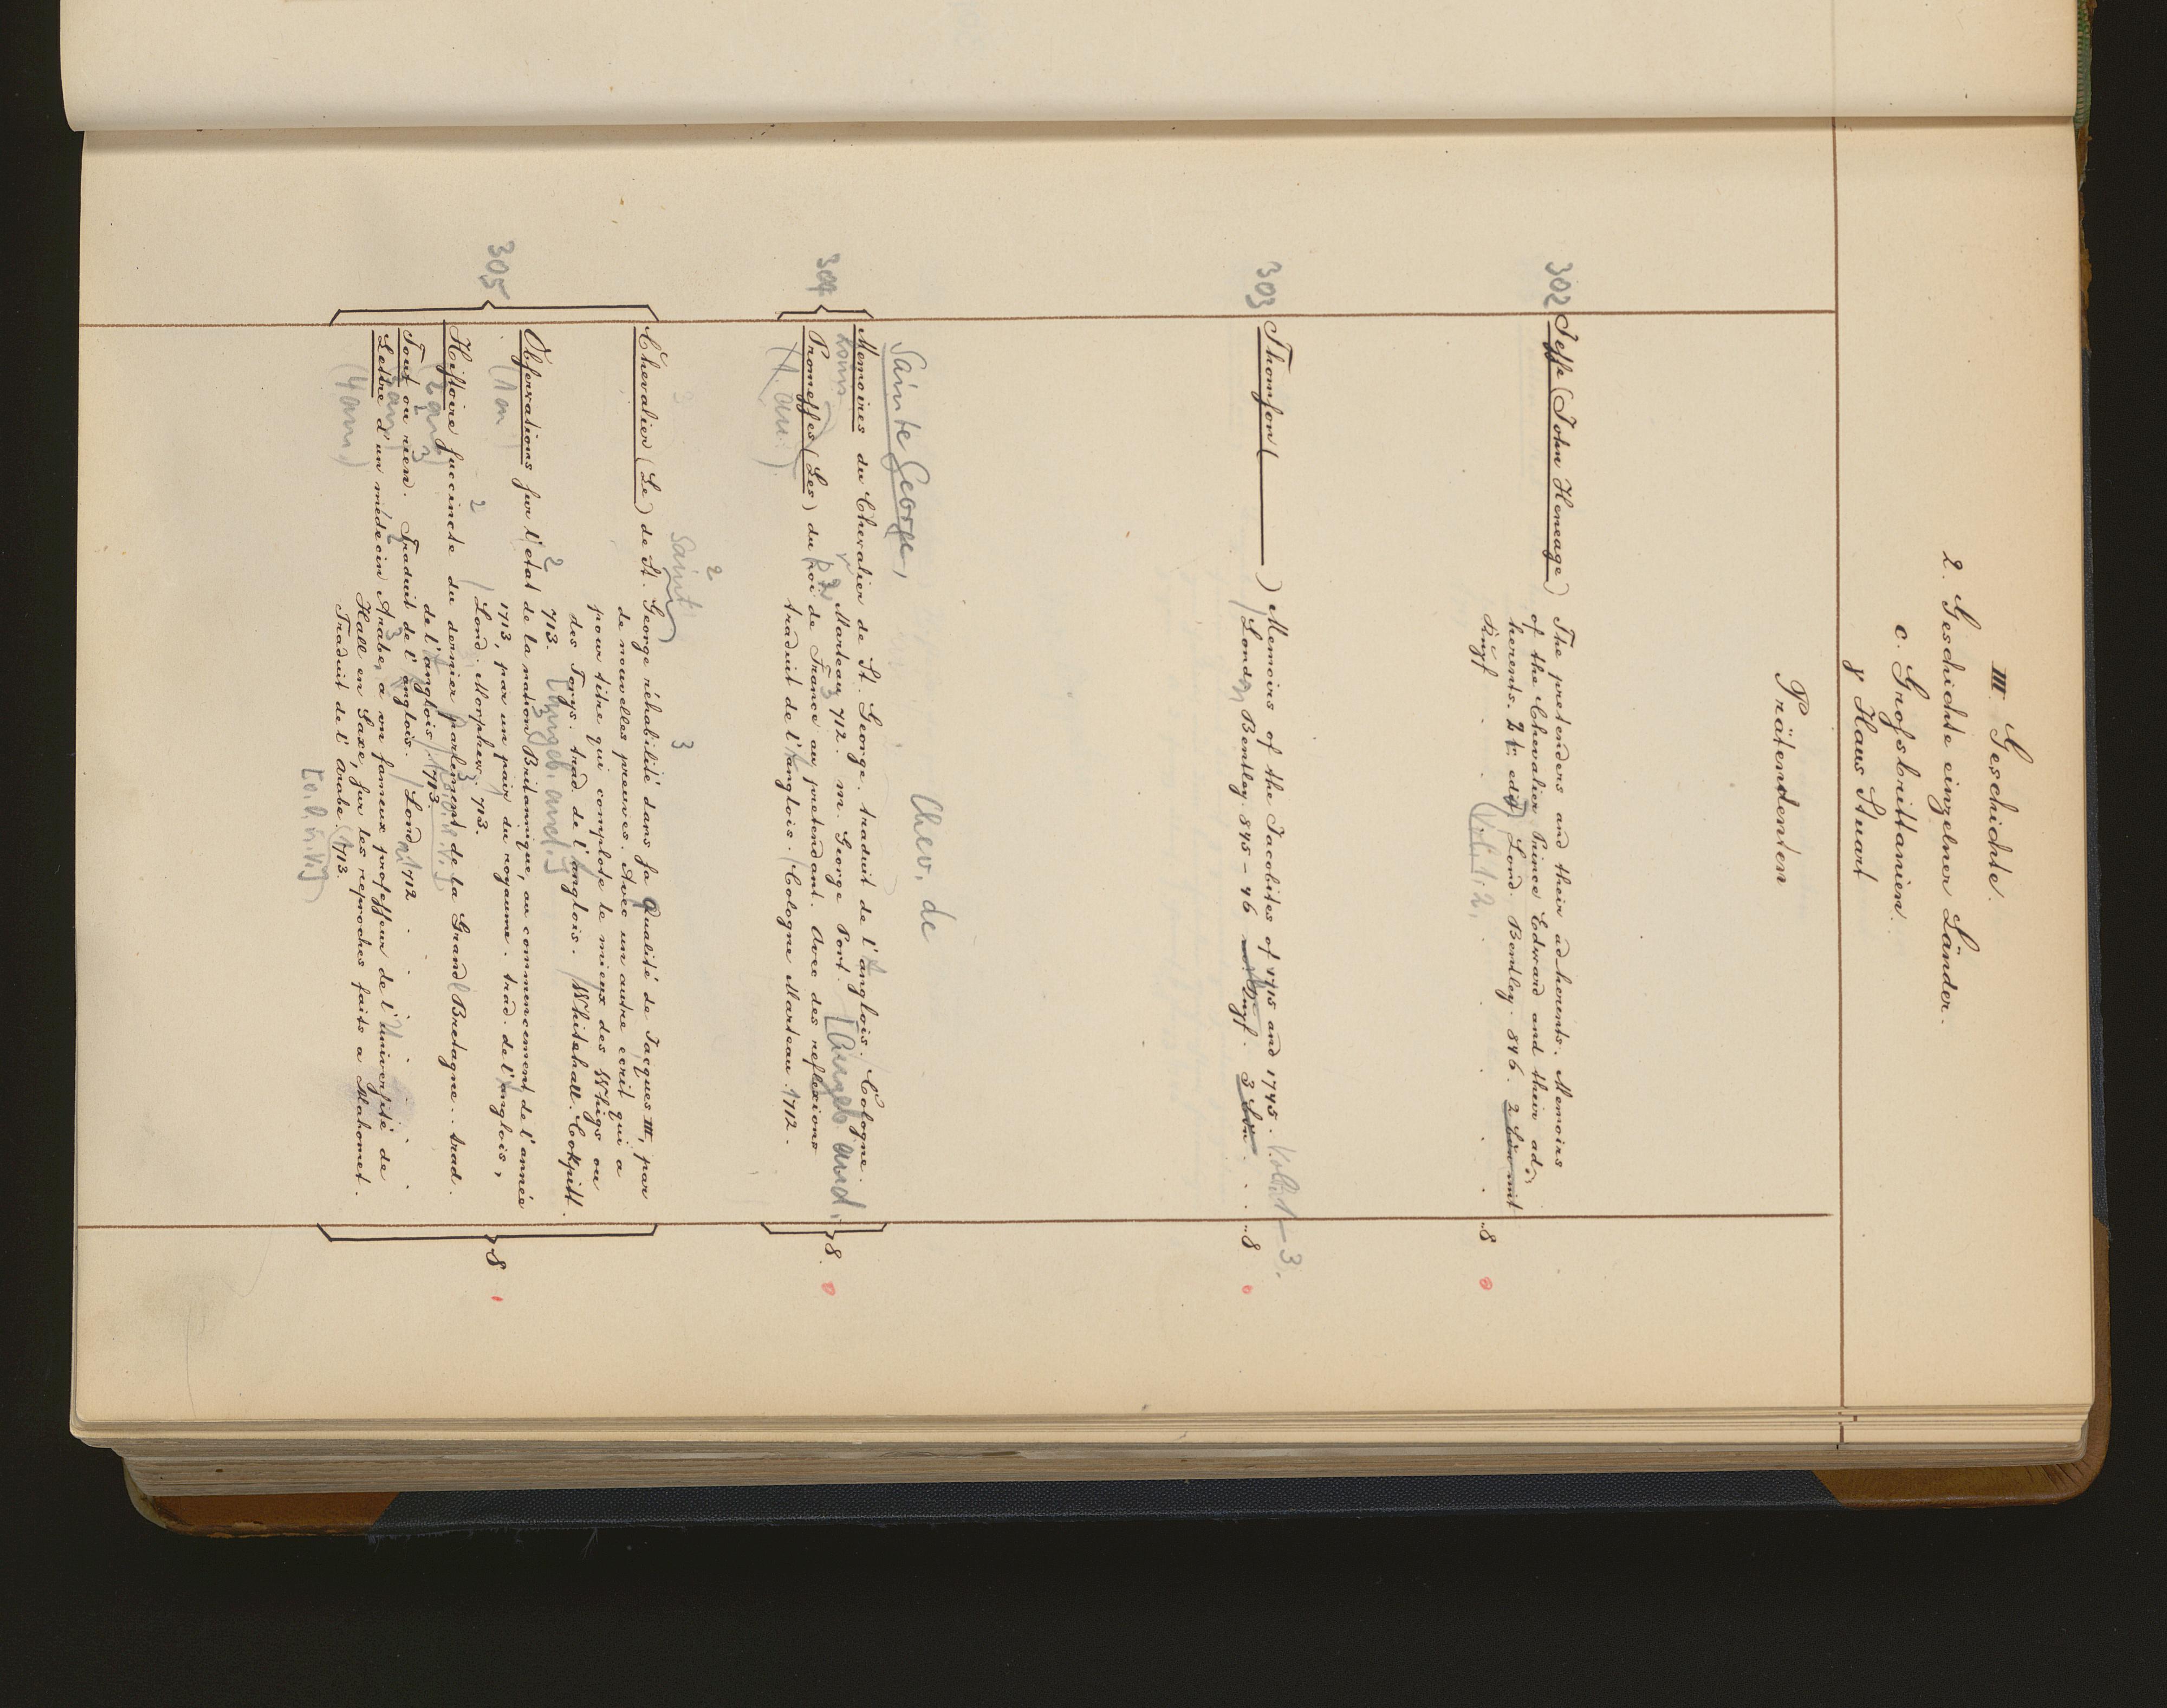 III. Geschichte.
2. Geschichte einzelner Länder.
c. Grofsbrittanien.
γ Haus Stuart
Prätendenten
302 Jeffe (John Heneage) The pretenders and their adherents. Memoirs
of the Chevalier Prince Edward and their ad-
herents. 2t. edit. Lond. Bentley. 846. 2 Bde mit
Kupf. . . . . . 8
Vol. 1. 2.
303 Thomfon (———) Memoirs of the Jacobites of 1715 and 1745. Vol. 1–3.
London, Bentley. 845–46 m. Kupf. 3 Bde. . . 8
Chev. de
Sainte George,
304 Memoires du Chevalier de St. George. traduit de l'anglois. Cologne.
Marteau 712. m. George Port. [Angeb. and.
Promeffes (Les) du roi de France au pretendant. Avec des reflexions
traduit de l'anglois. Cologne Marteau. 1712. 8.
(1. an.)
Saint
305 Chevalier (Le) de St. George réhabilité dans fa Qualité de Jacques III, par
de nouvelles preuves. Avec un autre ecrit qui a
pour titre qui complote le mieux des Whigs ou
des Torys. trad. de l'anglois. Whitehall. Cokpitt.
713. [angeb. and.]
Obfervations fur l'etat de la nation Britannique, au commencement de l'année
1713, par un pair du royaume. trad. de l'anglois,
(1 an) Lond. Morphew. 713.
Hiftoire fuccincte du dernier parlement de la Grand Bretagne. trad.
de l'anglois. 1713.
(2 an.)
Tout ou rien. Traduit de l'anglois. Lond. 1712 . . . . .
Lettre d'un médecin Arabe, a un fameux profeffeur de l'Univerfité de
Hall en Saxe, fur les reproches faits a Mahomet.
Traduit de l'Arabe. 1713.
(4 ann.) 8